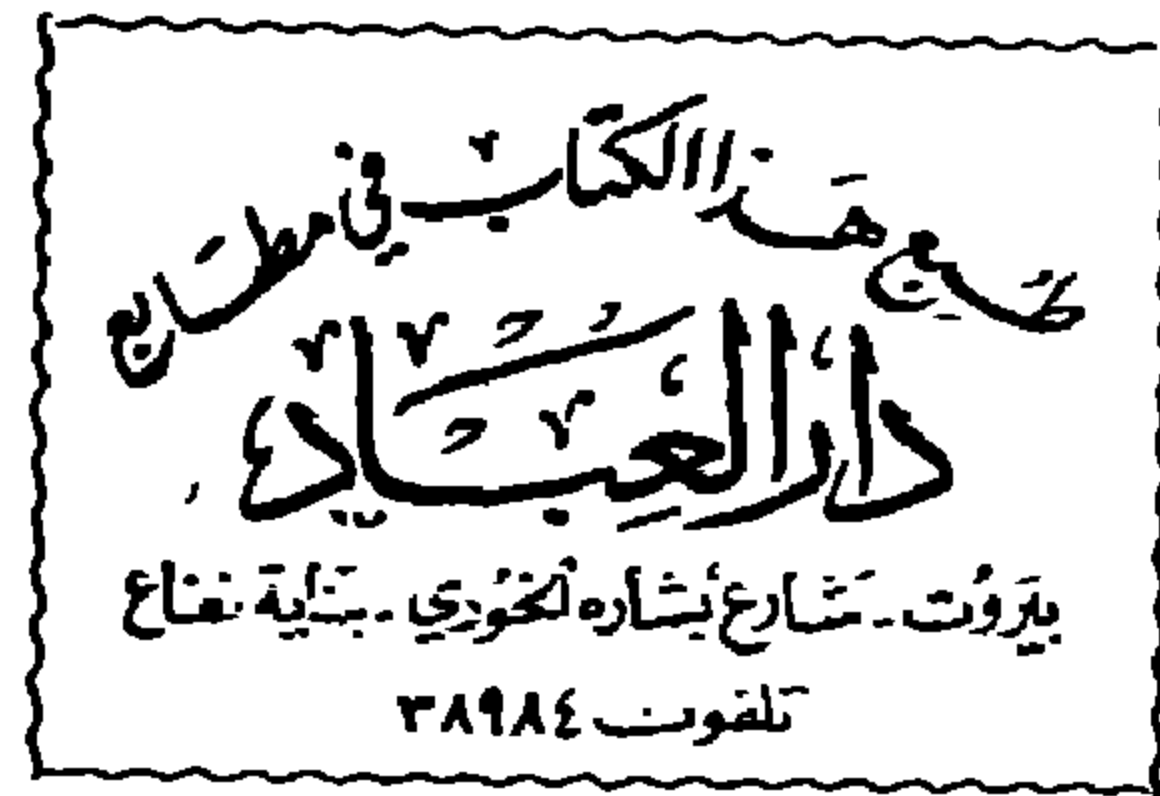 طبع هذا الكتاب في مطابع
دار العباد
بيروت - شارع بشاره الخوري - بناية نعناع
تلفون ٣٨٩٨٤